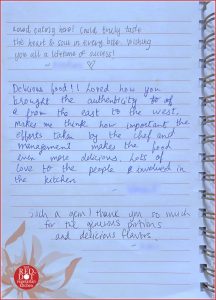 Loved eating here! Could truly taste
the heart & soul in every bite. Wishing
you all a lifetime of success!
Delicious food!! Loved how you
brought the authenticity to of
from the east to the west,
makes me think how important the
efforts take by the chef and
management makes the food
even more delicious. Lots of
love to the people involved in
the kitchen
Such a gem! Thank you so much
for the generous portions
and delicious flavors
RED
HOT